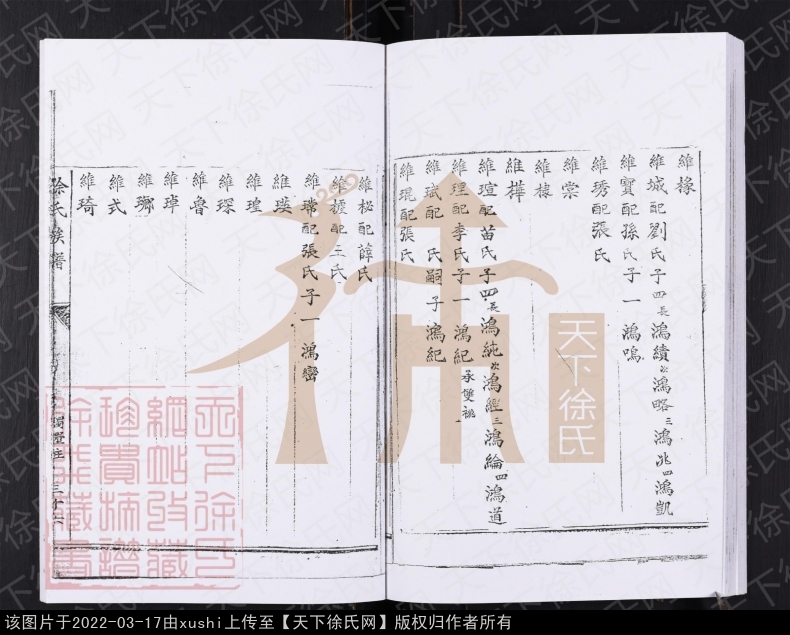 維椽
維城配劉氏子四長鴻績次鴻略三鴻兆四鴻凱
維寶配孫氏子一鴻鳴
維琇配張氏
維棠
維棣
維樺
維瑄配苗氏子四長鴻純次鴻經三鴻綸四鴻道
維理配李氏子一鴻紀承雙祧
維珷配 氏嗣子鴻紀
維琨配張氏
維松配薛氏
維瑗配王氏
維瑞配張氏子一鴻巒
維瑛
維瑝
維琛
維魯
維璋
維瑯
維式
維琦
徐氏族譜
三十六
天下徐氏
天下徐氏网
该图片于2022-03-17由xushi上传至【天下徐氏网】版权归作者所有